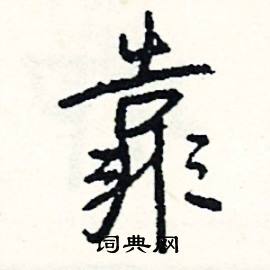 靠
词典网